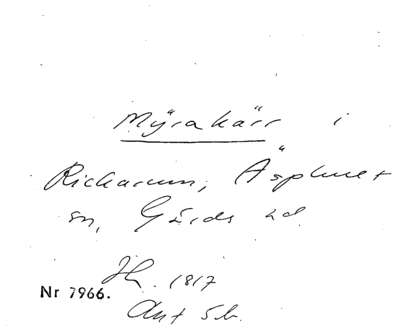 Myrakärr i
Rickarum, Äsphult
sn, Gärds hd.
Jh. 1817
Nr 7966.
Ant S.b.